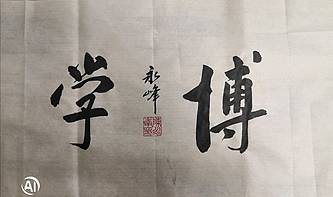 博学
永峰
AI